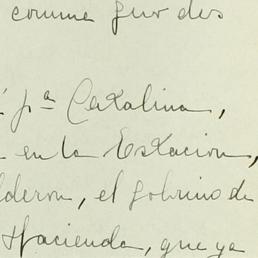 comme
pª Catalina,
en la Estacion,
lderon, el gobrino de
Hacienda, que ya